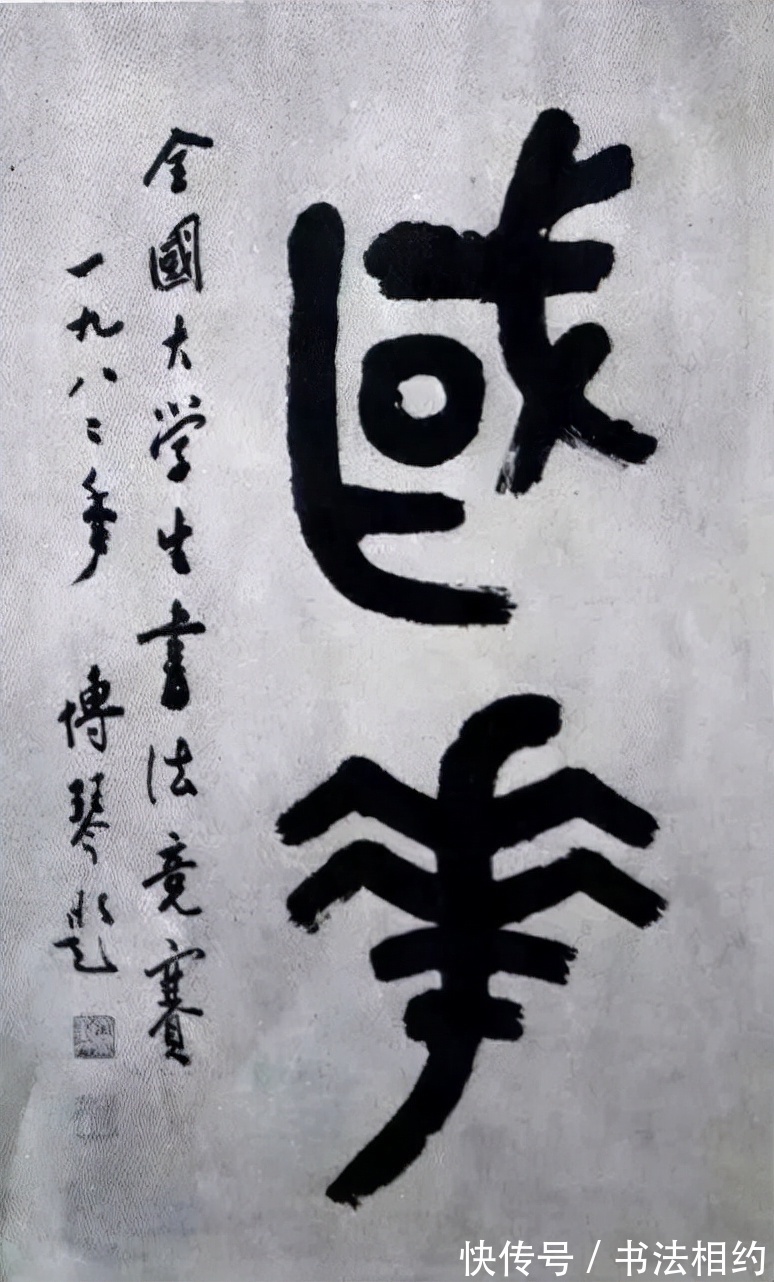 國華
全國大学生書法竞賽
一九八二年 博琴题
快传号 / 书法相约